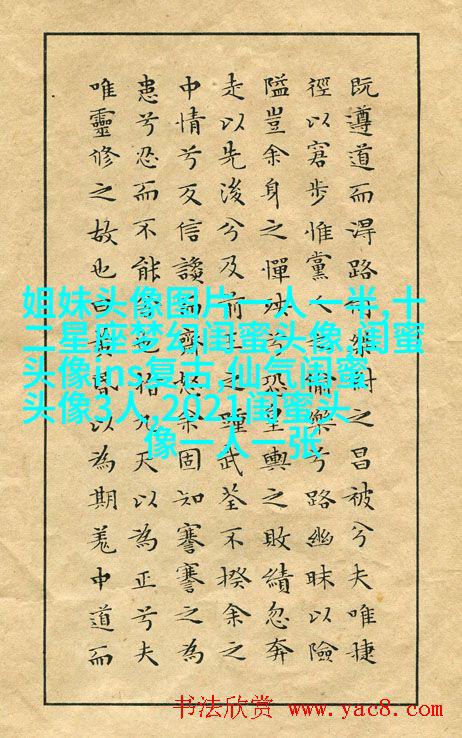 既遵道而得路何桀紂之昌被兮夫唯捷
徑以窘步惟黨人之偷樂兮路幽昧以險
隘豈余身之憚殃兮恐皇輿之敗績忽奔
走以先後兮及前王之踵武荃不揆余之
中情兮反信讒而齌怒余固知謇謇之為
患兮忍而不能舍也指九天以為正兮夫
唯靈修之故也曰黃昏以為期羌中道而
姐妹头像图片一人一半,十
二星座梦幻闺蜜头像,闺蜜
头像ins复古,仙气闺蜜
头像3人,2021闺蜜头
像一人一张
书法欣赏 www.yac8.com